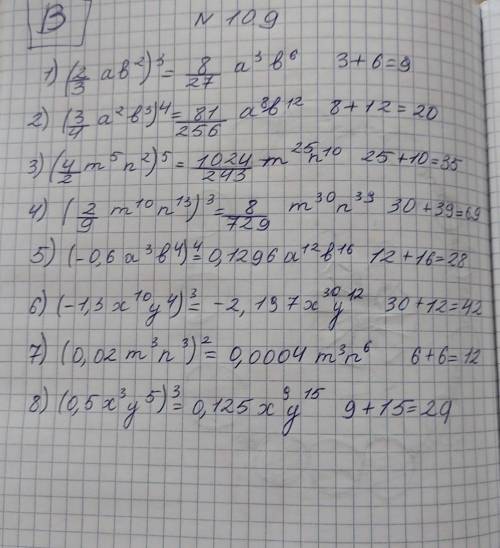 В N 109
1) (2/3 ab²)³ = 8/27 a³b⁶ 3+6=9
2) (3/4 a²b³)⁴ = 81/256 a⁸b¹² 8+12=20
3) (4/2 m⁵n²)⁵ = 1024/243 m²⁵n¹⁰ 25+10=35
4) (2/9 m¹⁰n¹³)³ = 8/729 m³⁰n³⁹ 30+39=69
5) (-0,6a³b⁴)⁴ = 0,1296a¹²b¹⁶ 12+16=28
6) (-1,3x¹⁰y⁴)³ = -2,197x³⁰y¹² 30+12=42
7) (0,02m³n³)² = 0,0004m³n⁶ 6+6=12
8) (0,5x³y⁵)³ = 0,125x⁹y¹⁵ 9+15=29